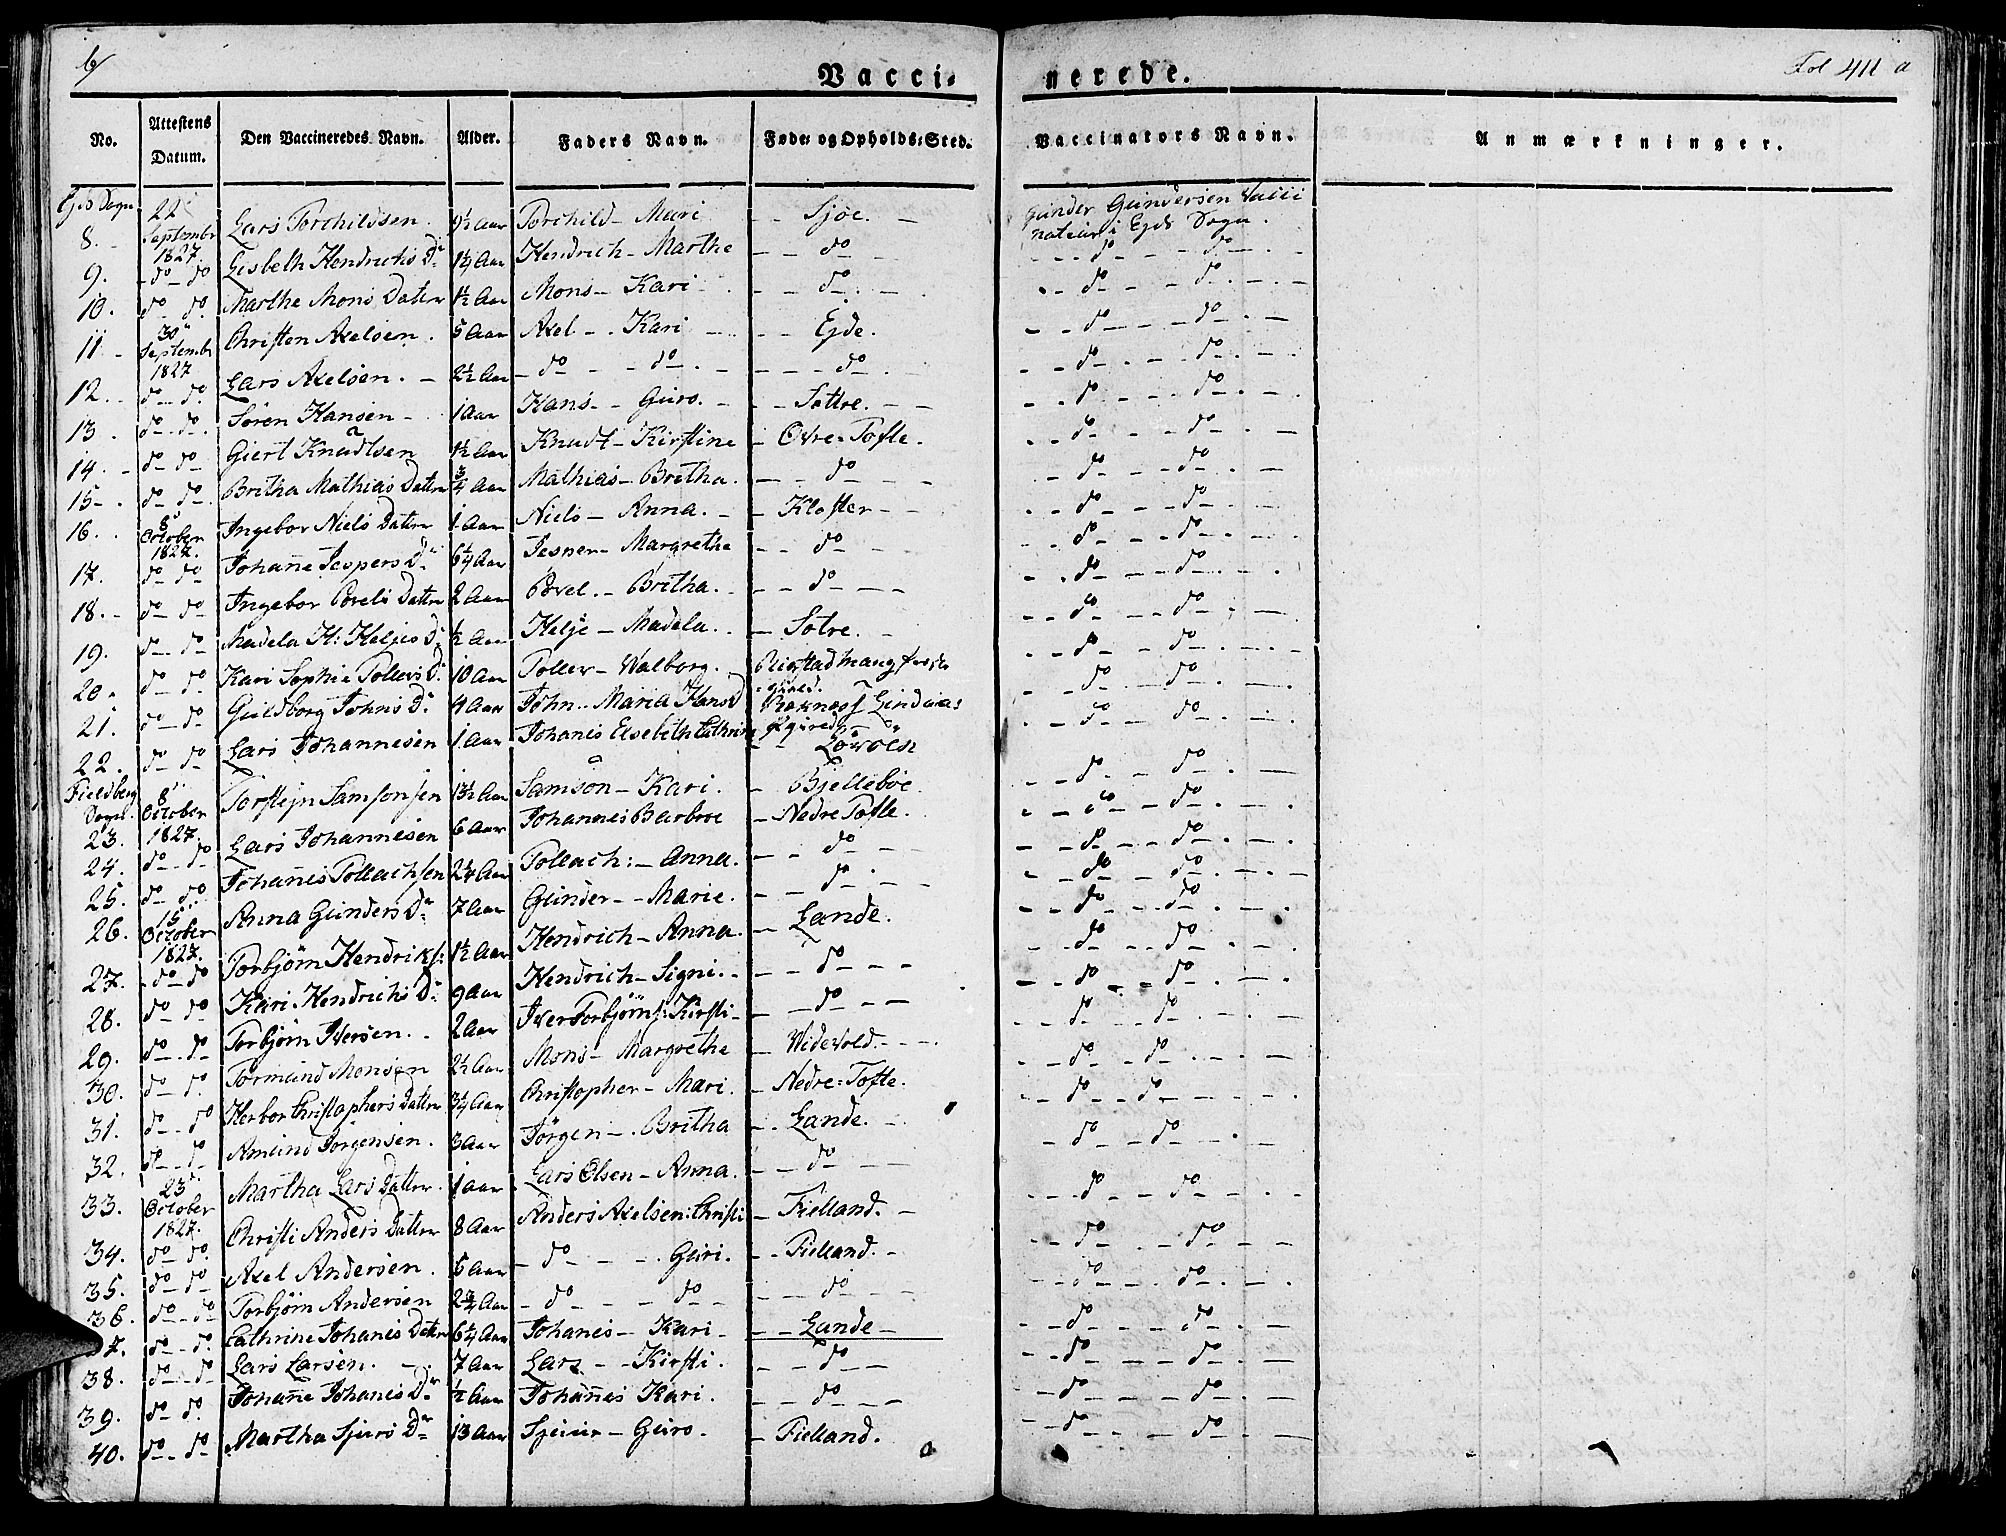 b/
Vacci- nerede.
Fol 411 a
No. Attestens Datum. Den Vaccineredes Navn. Alder. Faders Navn. Føde- og Opholds-Sted. Vaccinators Navn. Anmærkninger.
8. 22 Septembr 1827. Lars Torchildsen 9½ Aar Torchild - Mari - - Sjöe. - Gunder Gundersen Vacci
nateur i Egds Sogn.
9. do do Lisbeth Hendrichs Dr 1¼ Aar Hendrich - Marthe - - do - - do - - do -
10. do do. Marthe Mons Datter 1½ Aar Mons - Kari - - do - - do - - do -
11. 30 Septembr 1827 Christen Axelsen. 5 Aar Axel - - Kari - - Egde. - - do - - do -
12. do do. Lars Axelsen. - 2½ Aar - do - - do - - - do - - - do - - do -
13. do do. Sören Hansen - 1 Aar Hans - - Guro. - - Sottre. - - - do - - do -
14. do do Giert Knudtsen 1½ Aar Knudt - Kirstine - Ovre-Tofte. - do - - do -
15. do do. Britha Mathias Datter ¾ Aar Mathias - Britha. - - do - - do - - do -
16. 8 October 1827. Ingebor Niels Datter 1 Aar Niels - Anna. - - Kloster - - - do - - do -
17. do do Johañe Jespers Dr 6¼ Aar Jesper - Margrethe - - do - - do - - do -
18. do do Ingebor Povels Datter 2 Aar Povel. - Britha. - - do - - do - - do -
19. do do. Madela H: Heljes Dr ½ Aar Helje - Madela. - Sotre. - - do - - do -
20. do do Kari Sophie Tollers Dr 10 Aar Toller - Walborg. - do - - do -
21. do do Guldborg Johns Dr 4 Aar John. - Maria Hansd - do - - do -
22. do do Lars Johannesen 1 Aar Johanis Elsebeth Cathrine - do - - do -
Fieldberg Sogn.
23. 8 October 1827. Torstejn Samsonsen 13½ Aar Samson - Kari. - Bjelleböe. - do - - do -
24. do do Lars Johannesen 6 Aar Johannes Barbroe - Nedre Tofte. - do - - do -
25. do do Johañes Tollachsen 2¼ Aar Tollach: - Anna. - - do - - do - - do -
26. 15 October 1827. Anna Gunders Dr 7 Aar Gunder - - Marie. - - do - - do - - do -
27. do do Torbjörn Hendriks: 1½ Aar Hendrich - Anna. - Lande. - do - - do -
28. do do Kari Hendrichs Dr 9 Aar Hendrich - Signi. - - - do - - - do - - do -
29. do do Torbjörn Iversen. - 2 Aar Iver Torbjörns: Kirsti - - do - - - do - - do -
30. do do. Tormund Monsen 2½ Aar Mons - Margrethe - Widevold. - - - do - - do -
31. do do Herbor Christophers Datter 3¼ Aar Christopher - Mari. - Nedre-Tofte. - do - - do -
32. do do. Amund Jörgensen. 3 Aar Jörgen - Britha - Lande. - - do - - do -
33. 23 October 1827. Martha Lars Datter. 1 Aar Lars Olsen - Anna. - - do - - - do - - do -
34. do do. Christi Anders Datter 8 Aar Anders Axelsen: Christi - Fielland. - - do - - do -
35. do do. Axel Andersen. 5 Aar - do - - Guri. - - Fielland. - - do - - do -
36. do do Torbjörn Andersen 2¾ Aar - do - - do - - - do - - do - - do -
37. do do. Cathrine Johanis Datter 6¼ Aar Johanis - Kari - - - Lande - - do - - do -
38. do do Lars Larsen. 7 Aar Lars - - Kirsti. - - do - - do - - do -
39. do do. Johañe Johanis Dr ½ Aar Johañes Kari. - - do - - - do - - do -
40. do do Martha Sjurs Dr 13 Aar Sjuur - Guro. - Fielland. - do - - do -